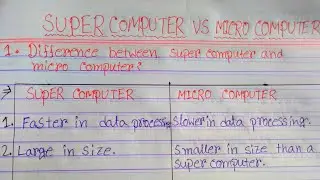 SUPER COMPUTER VS MICRO COMPUTER
1. Difference between super computer and
micro computer?
→ SUPER COMPUTER MICRO COMPUTER
1. Faster in data processing Slower in data processing.
2. Large in size. Smaller in size than a
super computer.